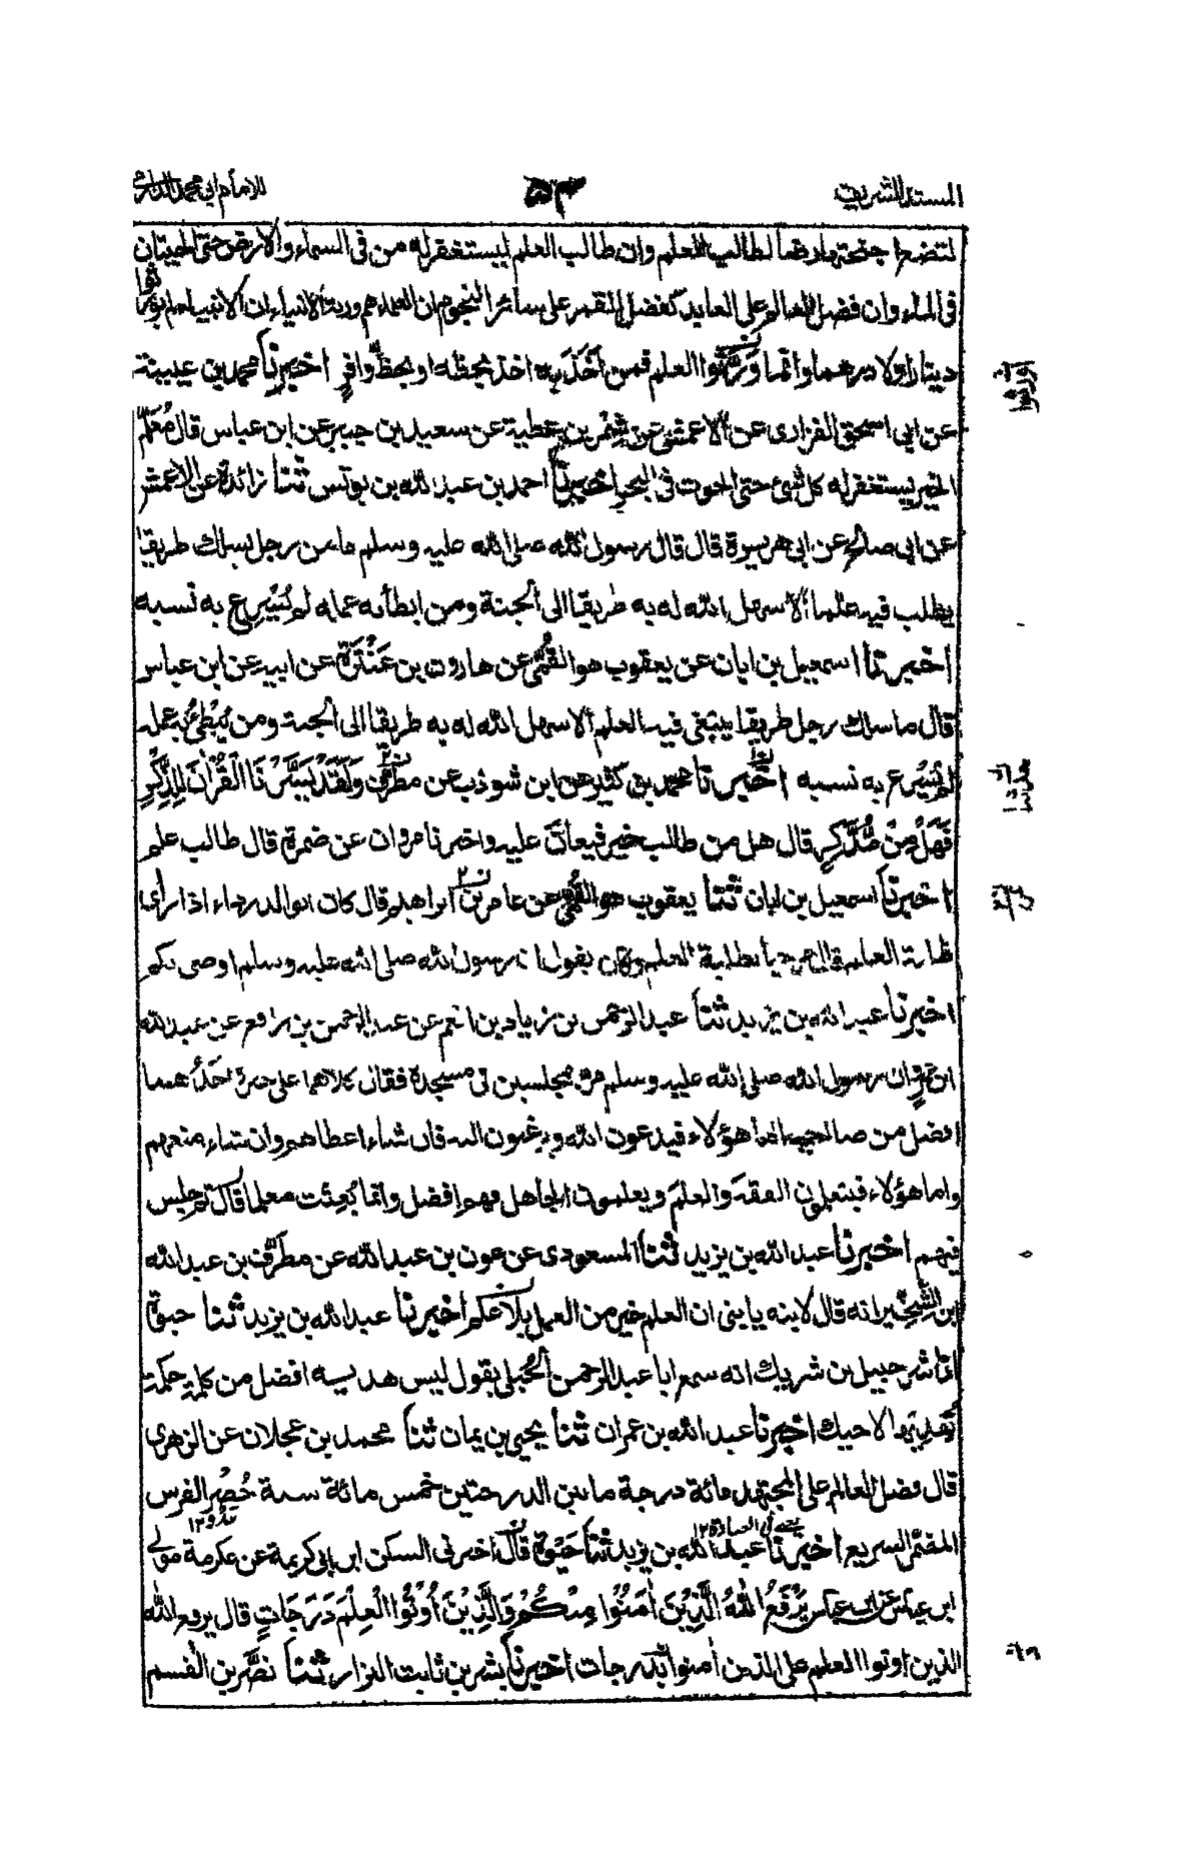 المسند الشريف ۵۳ للامام ابي محمد الدارمي
لتضع اجنحتها رضا لطالب العلم وان طالب العلم ليستغفر له من فى السماء والارض حتى الحيتان
فى الماء وان فضل العالم على العابد كفضل القمر على سائر النجوم ان العلماء هم ورثة الانبياء ان الانبياء لم يورثوا
دينارا ولا درهما وانما وَرَّثوا العلم فمن اَخَذَ به اخذ بحظه او بحظ وافرٍ اخبرنا محمد بن عيينة
عن ابى اسحق الفزارى عن الاعمش عن شِمْر بن عطية عن سعيد بن جبير عن ابن عباس قال مُعَلّم
الخير يستغفر له كل شئ حتى الحوت فى البحر اخبرنا احمد بن عبد الله بن يونس ثنا زائدة عن الاعمش
عن ابى صالح عن ابى هريرة قال قال رسول الله صلى الله عليه وسلم ما من رجل يسلك طريقا
يطلب فيه علما الا سهل الله له به طريقا الى الجنة ومن ابطأ به عمله لم يُسْرِع به نسبه
اخبرنا اسمعيل بن ابان عن يعقوب هو القُمّى عن هارون بن عَنْتَرَة عن ابيه عن ابن عباس
قال ما سلك رجل طريقا يبتغى فيه العلم الا سهل الله له به طريقا الى الجنة ومن يُبْطِئُ به عمله
لم يُسْرع به نسبه اخبرنا محمد بن كثير عن ابن شوذب عن مطرٍ وَلَقَدْ يَسَّرْنَا الْقُرْاٰنَ لِلذِّكْرِ
فَهَلْ مِنْ مُّدَّكِرٍ قال هل من طالب خير فيعانَ عليه واخبرنا مروان عن ضمرة قال طالب علم
اخبرنا اسمعيل بن ابان ثنا يعقوب هو القُمّى عن عامر بن ابراهيم قال كان ابو الدرداء اذا رأى
طلبة العلم قال مرحبا بطلبة العلم وكان يقول ان رسول الله صلى الله عليه وسلم اوصى بكم
اخبرنا عبد الله بن يزيد ثنا عبد الرحمن بن زياد بن انعم عن عبد الرحمن بن رافع عن عبد الله
ابن عمرو ان رسول الله صلى الله عليه وسلم مر بمجلسين فى مسجده فقال كلاهما على خير احَدُهما
افضل من صاحبه اما هؤلاء فيدعون الله ويرغبون اليه فان شاء اعطاهم وان شاء منعهم
واما هؤلاء فيتعلمون الفقهَ والعلمَ ويعلمون الجاهل فهم افضل وانما بُعِثت معلما قال ثم جلس
فيهم اخبرنا عبد الله بن يزيد ثنا المسعودى عن عون بن عبد الله عن مطرِّف بن عبد الله
ابن الشِّخِّير انه قال لابنه يا بنى ان العلم خير من العمل بلا علم اخبرنا عبد الله بن يزيد ثنا حيوة
انا شرحبيل بن شريك انه سمع ابا عبد الرحمن الحُبُلى يقول ليس هدية افضل من كلمة حكمة
تُهديها لاخيك اخبرنا عبد الله بن عمران ثنا يحيى بن يمان ثنا محمد بن عجلان عن الزهرى
قال فضل العالم على المجتهد مائة درجة ما بين الدرجتين خمس مائة سنة حُضْر الفرس
المضمّر السريع اخبرنا عبد الله بن يزيد ثنا حَيْوَة قال اخبرنى السكن ابن ابى كريمة عن عكرمة مولى
ابن عباس عن ابن عباس يَرْفَعُ اللّٰهُ الَّذِيْنَ اٰمَنُوْا مِنْكُمْ وَالَّذِيْنَ اُوْتُوا الْعِلْمَ دَرَجَاتٍ قال يرفع الله
الذين اوتوا العلم على الذين اٰمنوا بدرجات اخبرنا بشر بن ثابت البزار ثنا نصر بن القسم
اورثوا
حدثنا